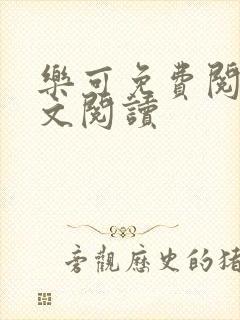 樂可免費閱
文閱讀
旁觀歷史的猪